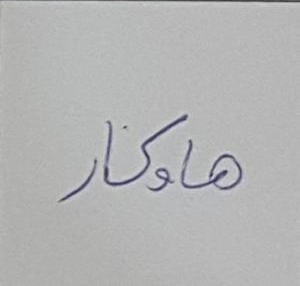 هاوکار